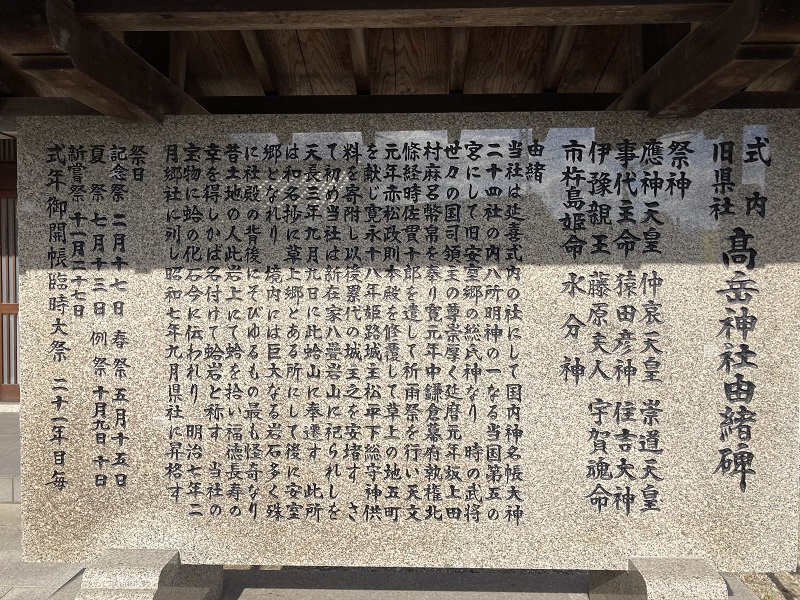 式内
旧県社
髙岳神社由緒碑
祭神
應神天皇 仲哀天皇 崇道天皇
事代主命 猿田彦神 住吉大神
伊豫親王 藤原夫人 宇賀魂命
市杵島姫命 水分神
由緒
当社は延喜式内の社にして国内神名帳大神
二十四社の内八所明神の一なる当国第五の
宮にして旧安室郷の総氏神なり 時の武将
世々の国司領主の尊崇厚く延暦元年坂上田
村麻呂幣帛を奉り寛元年中鎌倉幕府執権北
條経時佐貫十郎を遣して祈雨祭を行い天文
元年赤松政則本殿を修覆して草上の地五町
を献じ寛永十八年姫路城主松平下総守神供
料を寄附し以後累代の城主之を安堵す さ
て初め当社は新在家八畳岩山に祀られしを
天長三年九月九日に此蛤山に奉遷す 此所
は和名抄に草上郷とある所にして後に安室
郷となれり 境内には巨大なる岩石多く殊
に社殿の背後にそびゆるもの最も怪奇なり
昔土地の人此岩上にて蛤を拾い福徳長寿の
幸を得しかば名付けて蛤岩と称す 当社の
宝物に蛤の化石今に伝われり 明治七年二
月郷社に列し昭和七年九月県社に昇格す
祭日
記念祭 二月十七日 春祭 五月十五日
夏祭 七月十三日 例祭 十月九日 十日
新嘗祭 十一月二十七日
式年御開帳臨時大祭 二十一年目毎